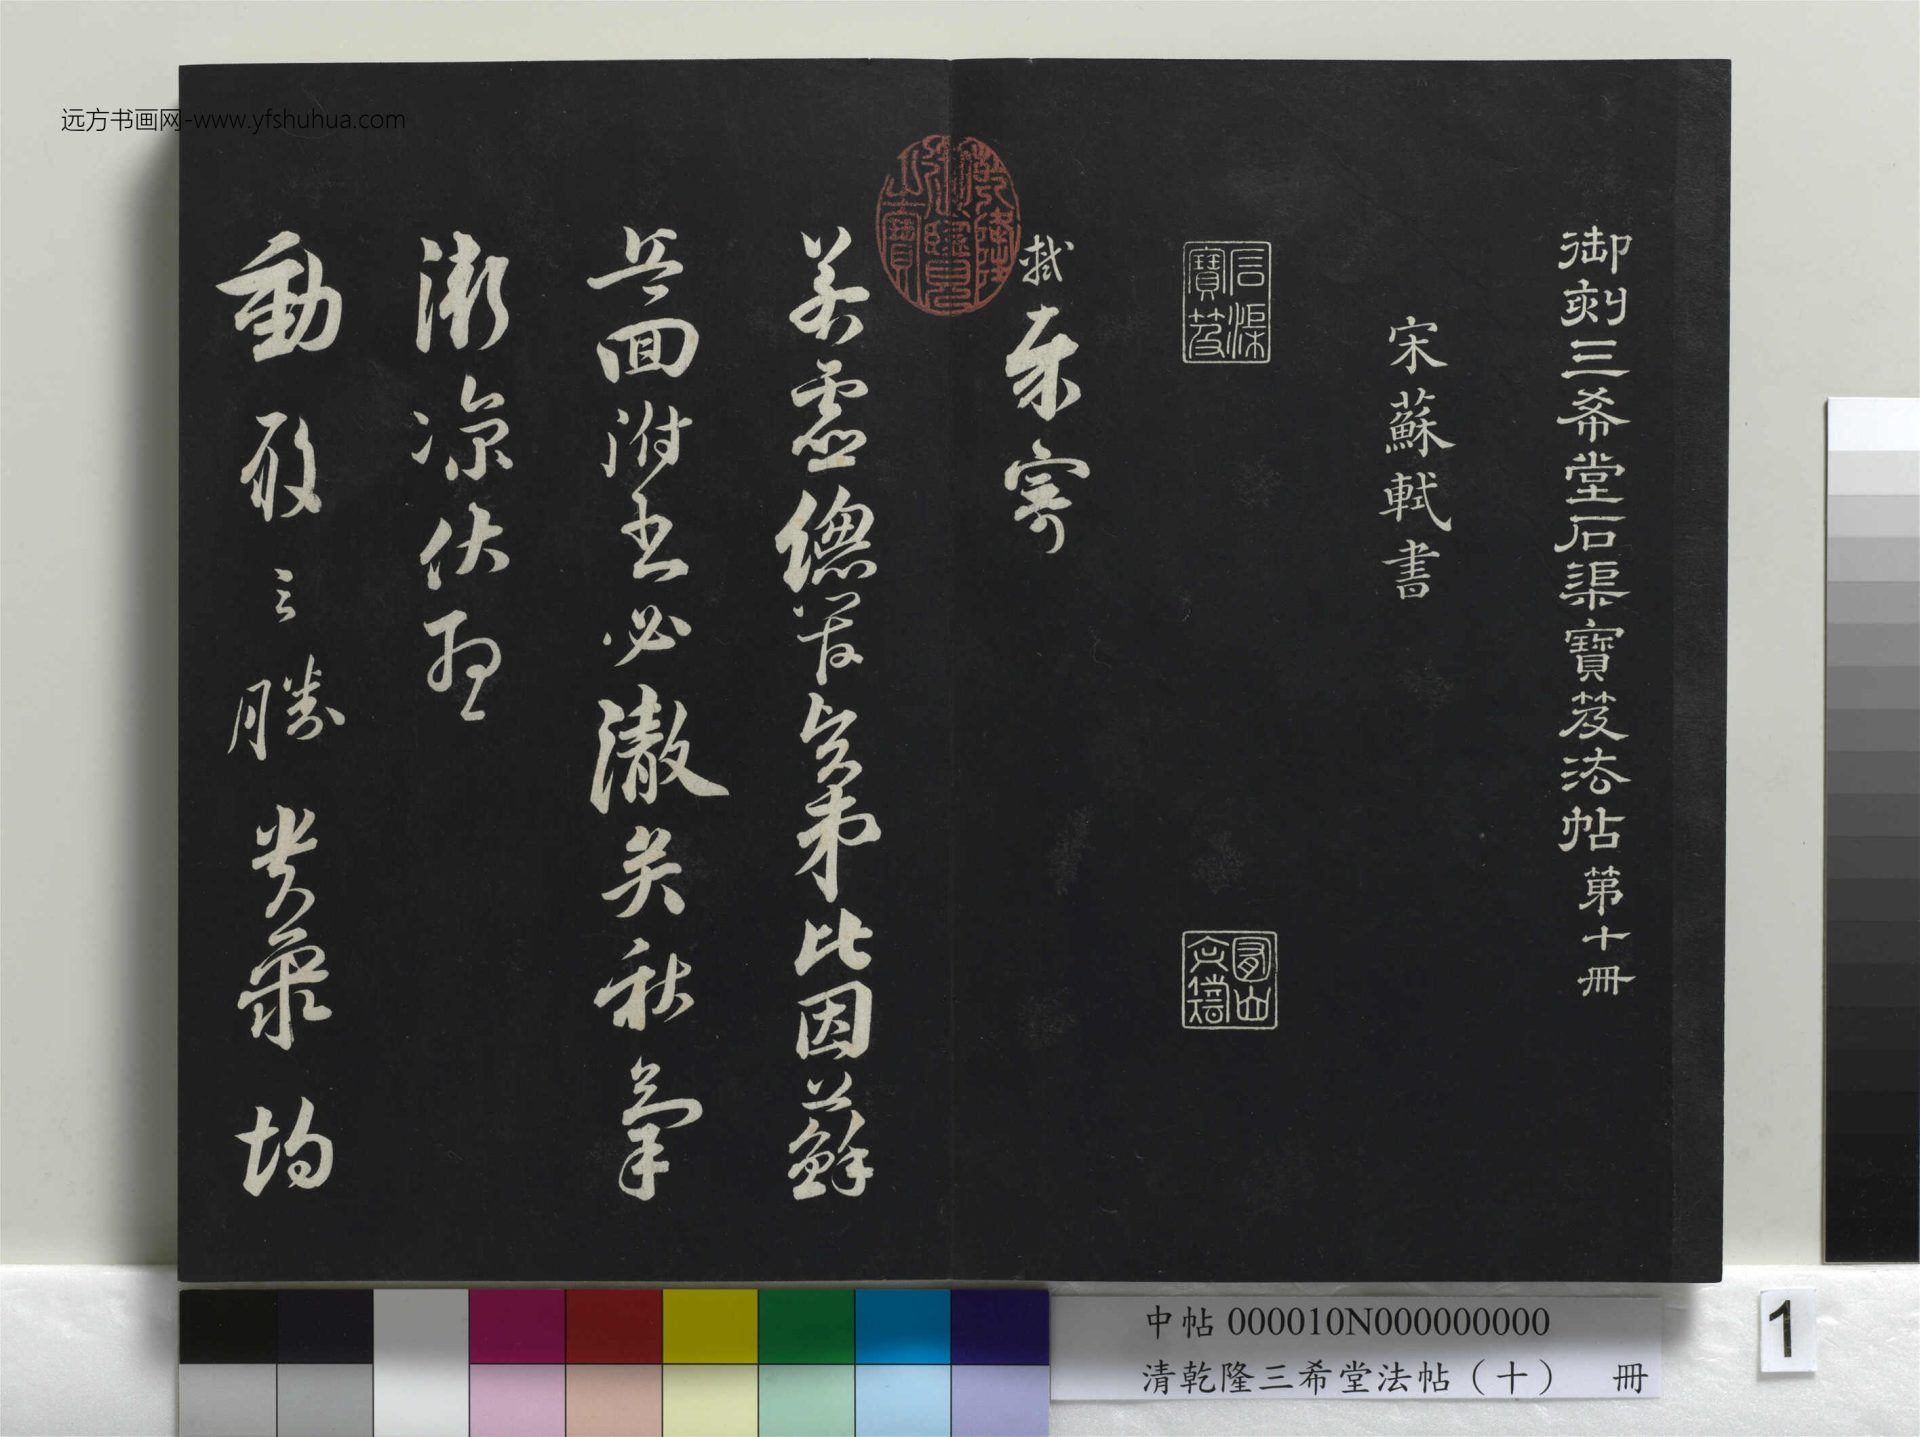 远方书画网-www.yfshuhua.com
御刻三希堂石渠寶笈法帖第十冊
宋蘇軾書
石渠寶笈
乾隆御覽之寶
軾柬寄
若虛總管賢弟比因蘇
兵回附書必澈矣秋氣
漸涼伏惟
動履之勝貴聚均
中帖 000010N000000000
清乾隆三希堂法帖（十） 冊
1